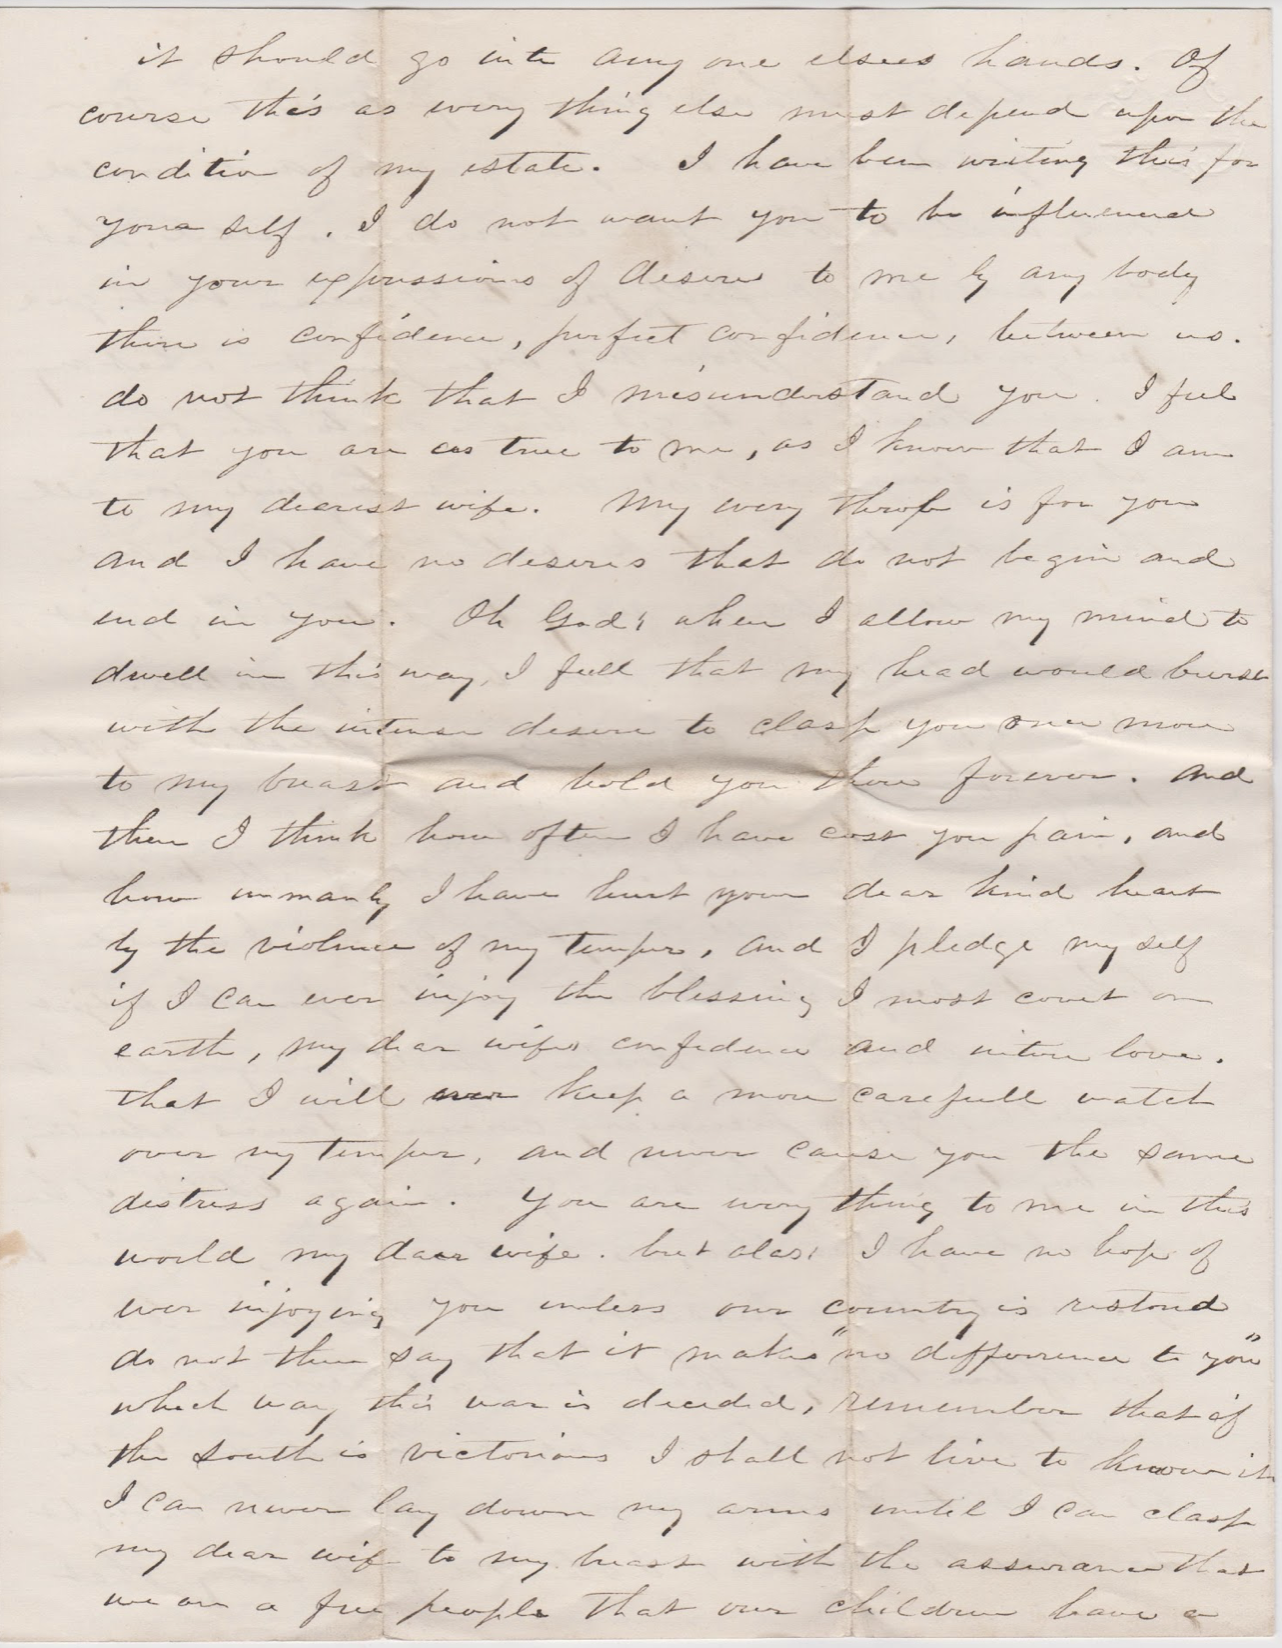 it should go into any one elsees hands. Of
course this as every thing else must depend upon the
condition of my estate. I have been writing this for
your self. I do not want you to be influenced
in your expressions of desire to me by any body
there is confidence, perfect confidence, between us.
do not think that I misunderstand you. I feel
that you are as true to me, as I know that I am
to my dearest wife. My every throb is for you
and I have no desires that do not begin and
end in you. Oh God! when I allow my mind to
dwell in this way, I feell that my head would burst
with the intense desire to clasp you once more
to my breast and hold you there forever. And
then I think how often I have cost you pain, and
how unmanly I have hurt your dear kind heart
by the violence of my temper, and I pledge my self
if I can ever injoy the blessing I most covet on
earth, my dear wifes confidence and intire love.
that I will ever keep a more carefull watch
over my temper, and never cause you the same
distress again. You are every thing to me in this
world my dear wife. but alas! I have no hope of
ever injoying you unless our country is restored
do not then say that it makes "no difference to you"
which way this war is decided, remember that if
the South is victorious I shall not live to know it
I can never lay down my arms until I can clasp
my dear wife to my breast with the assurance that
we are a free people that our children have a